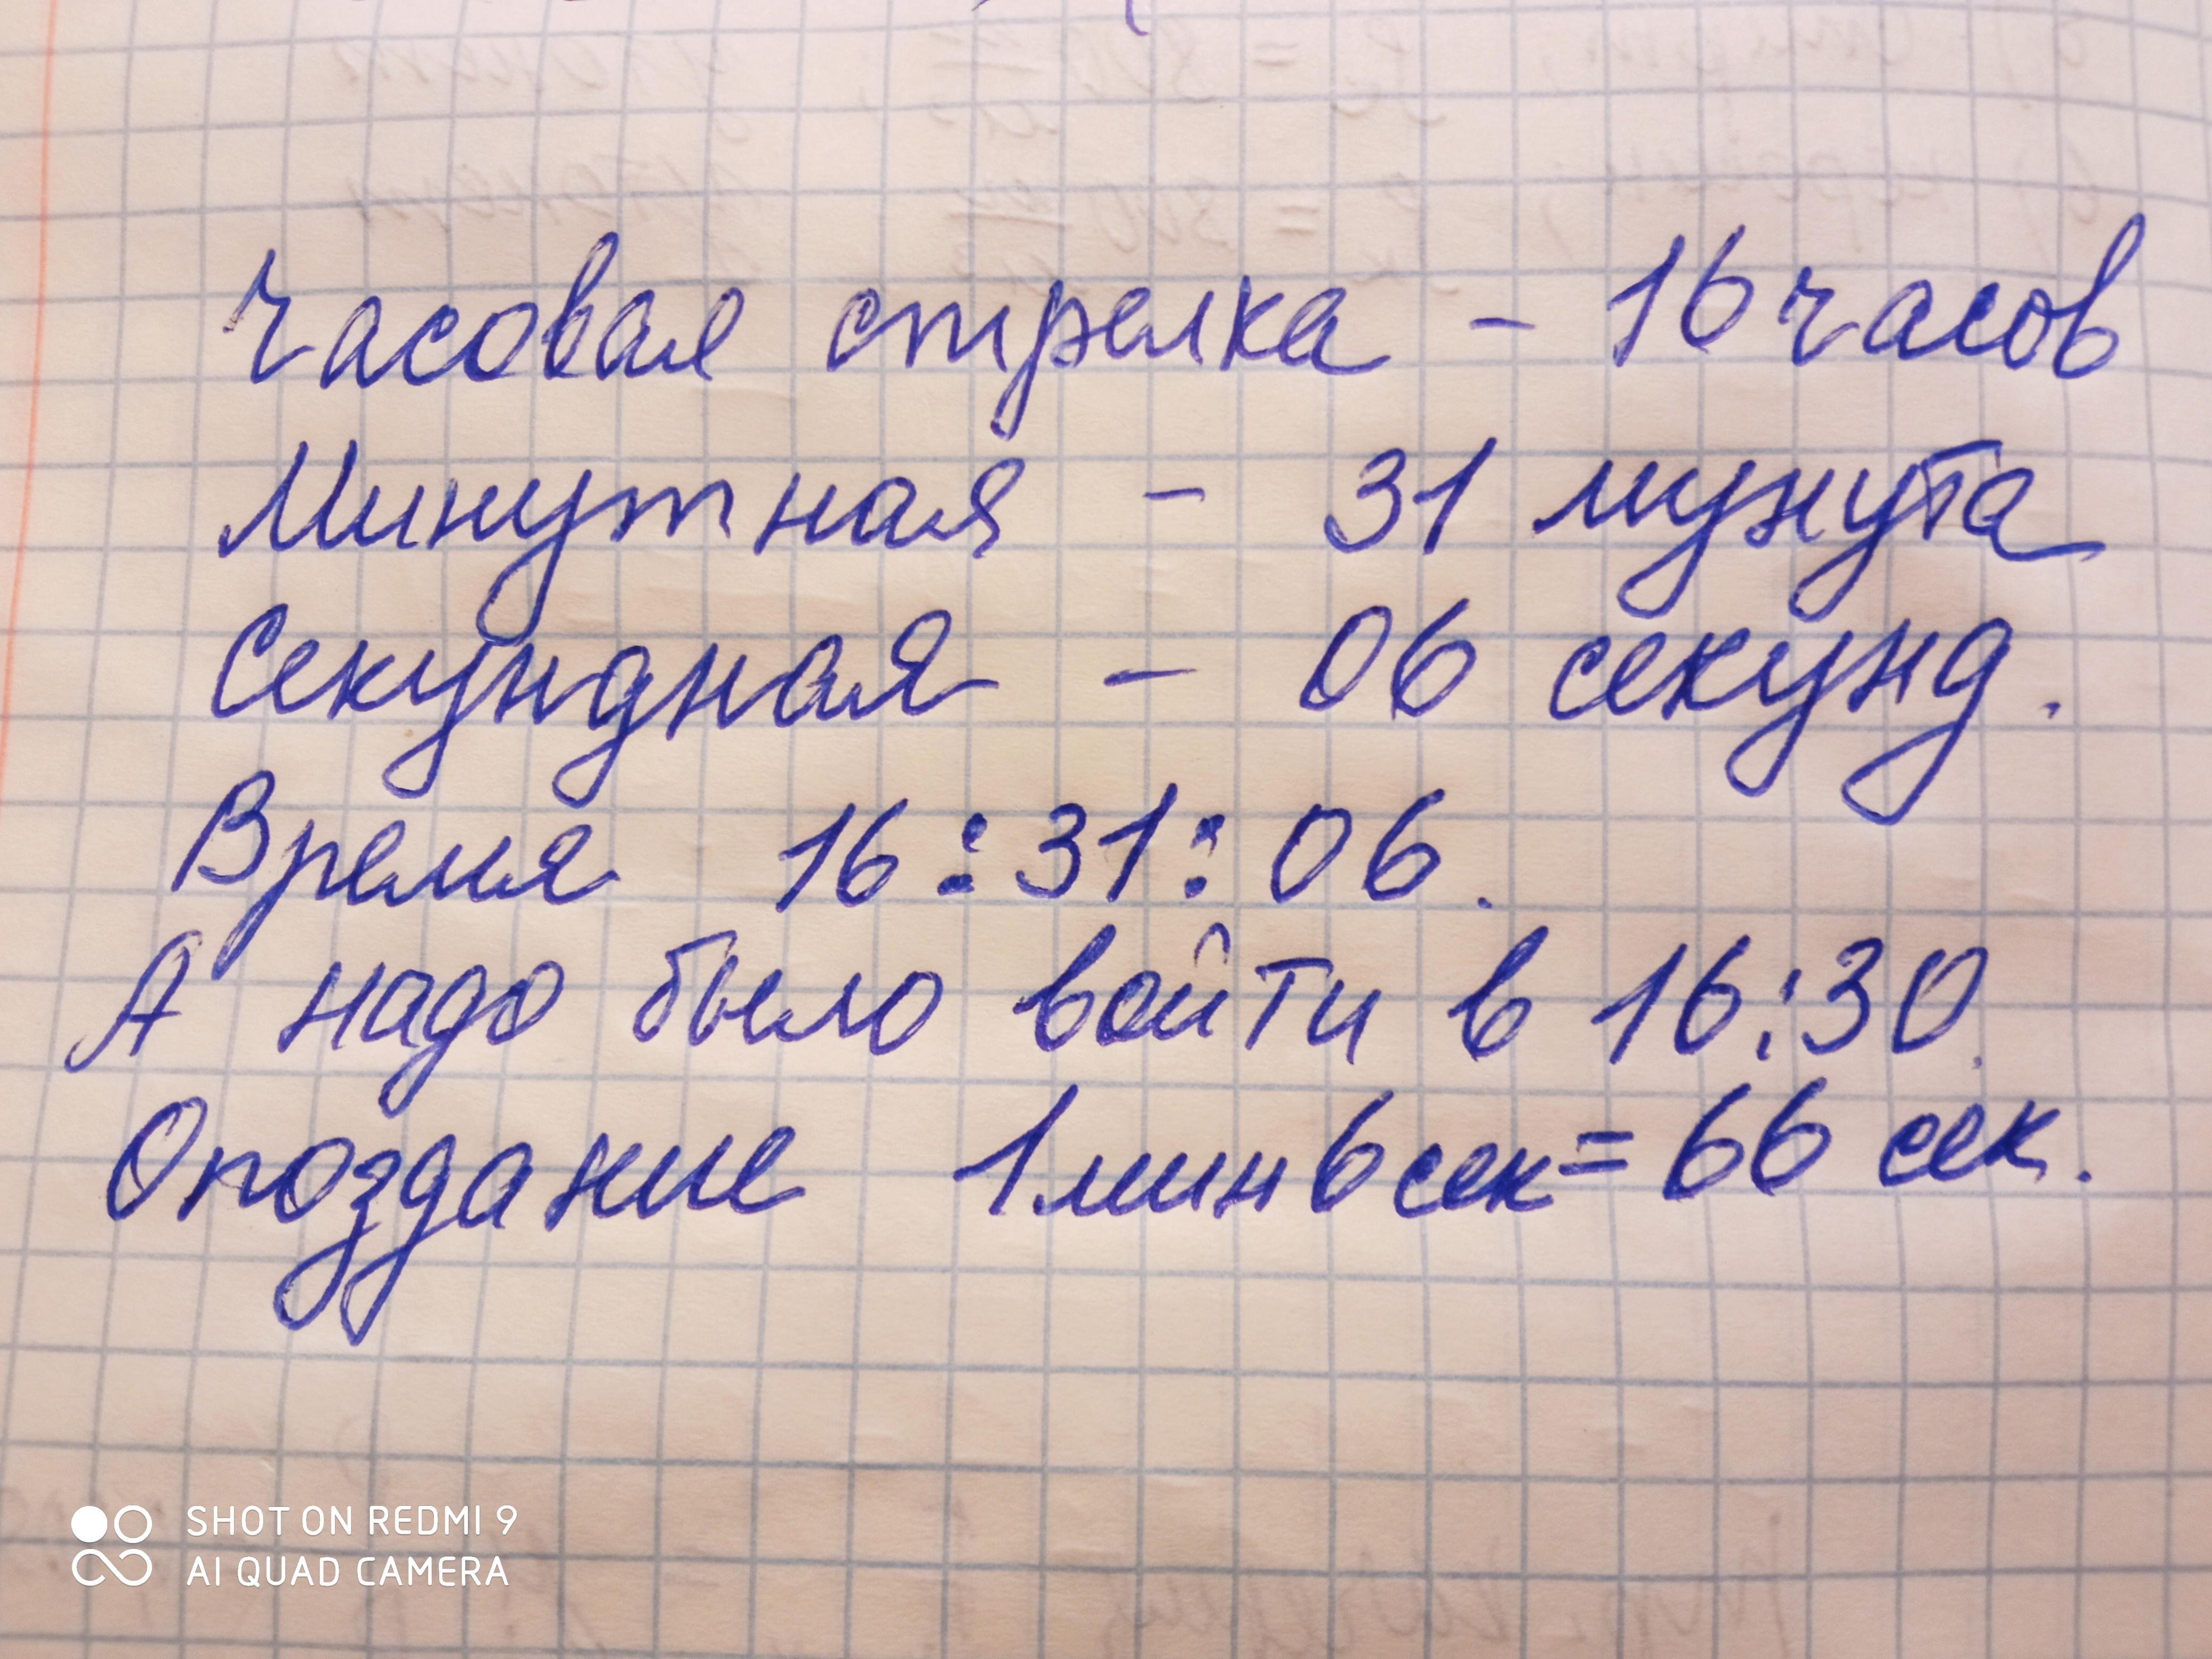 Часовая стрелка - 16 часов
Минутная - 31 мунута
Секундная - 06 секунд.
Время 16:31:06.
А надо было войти в 16:30.
Опоздание 1 мин 6 сек = 66 сек.
SHOT ON REDMI 9
AI QUAD CAMERA